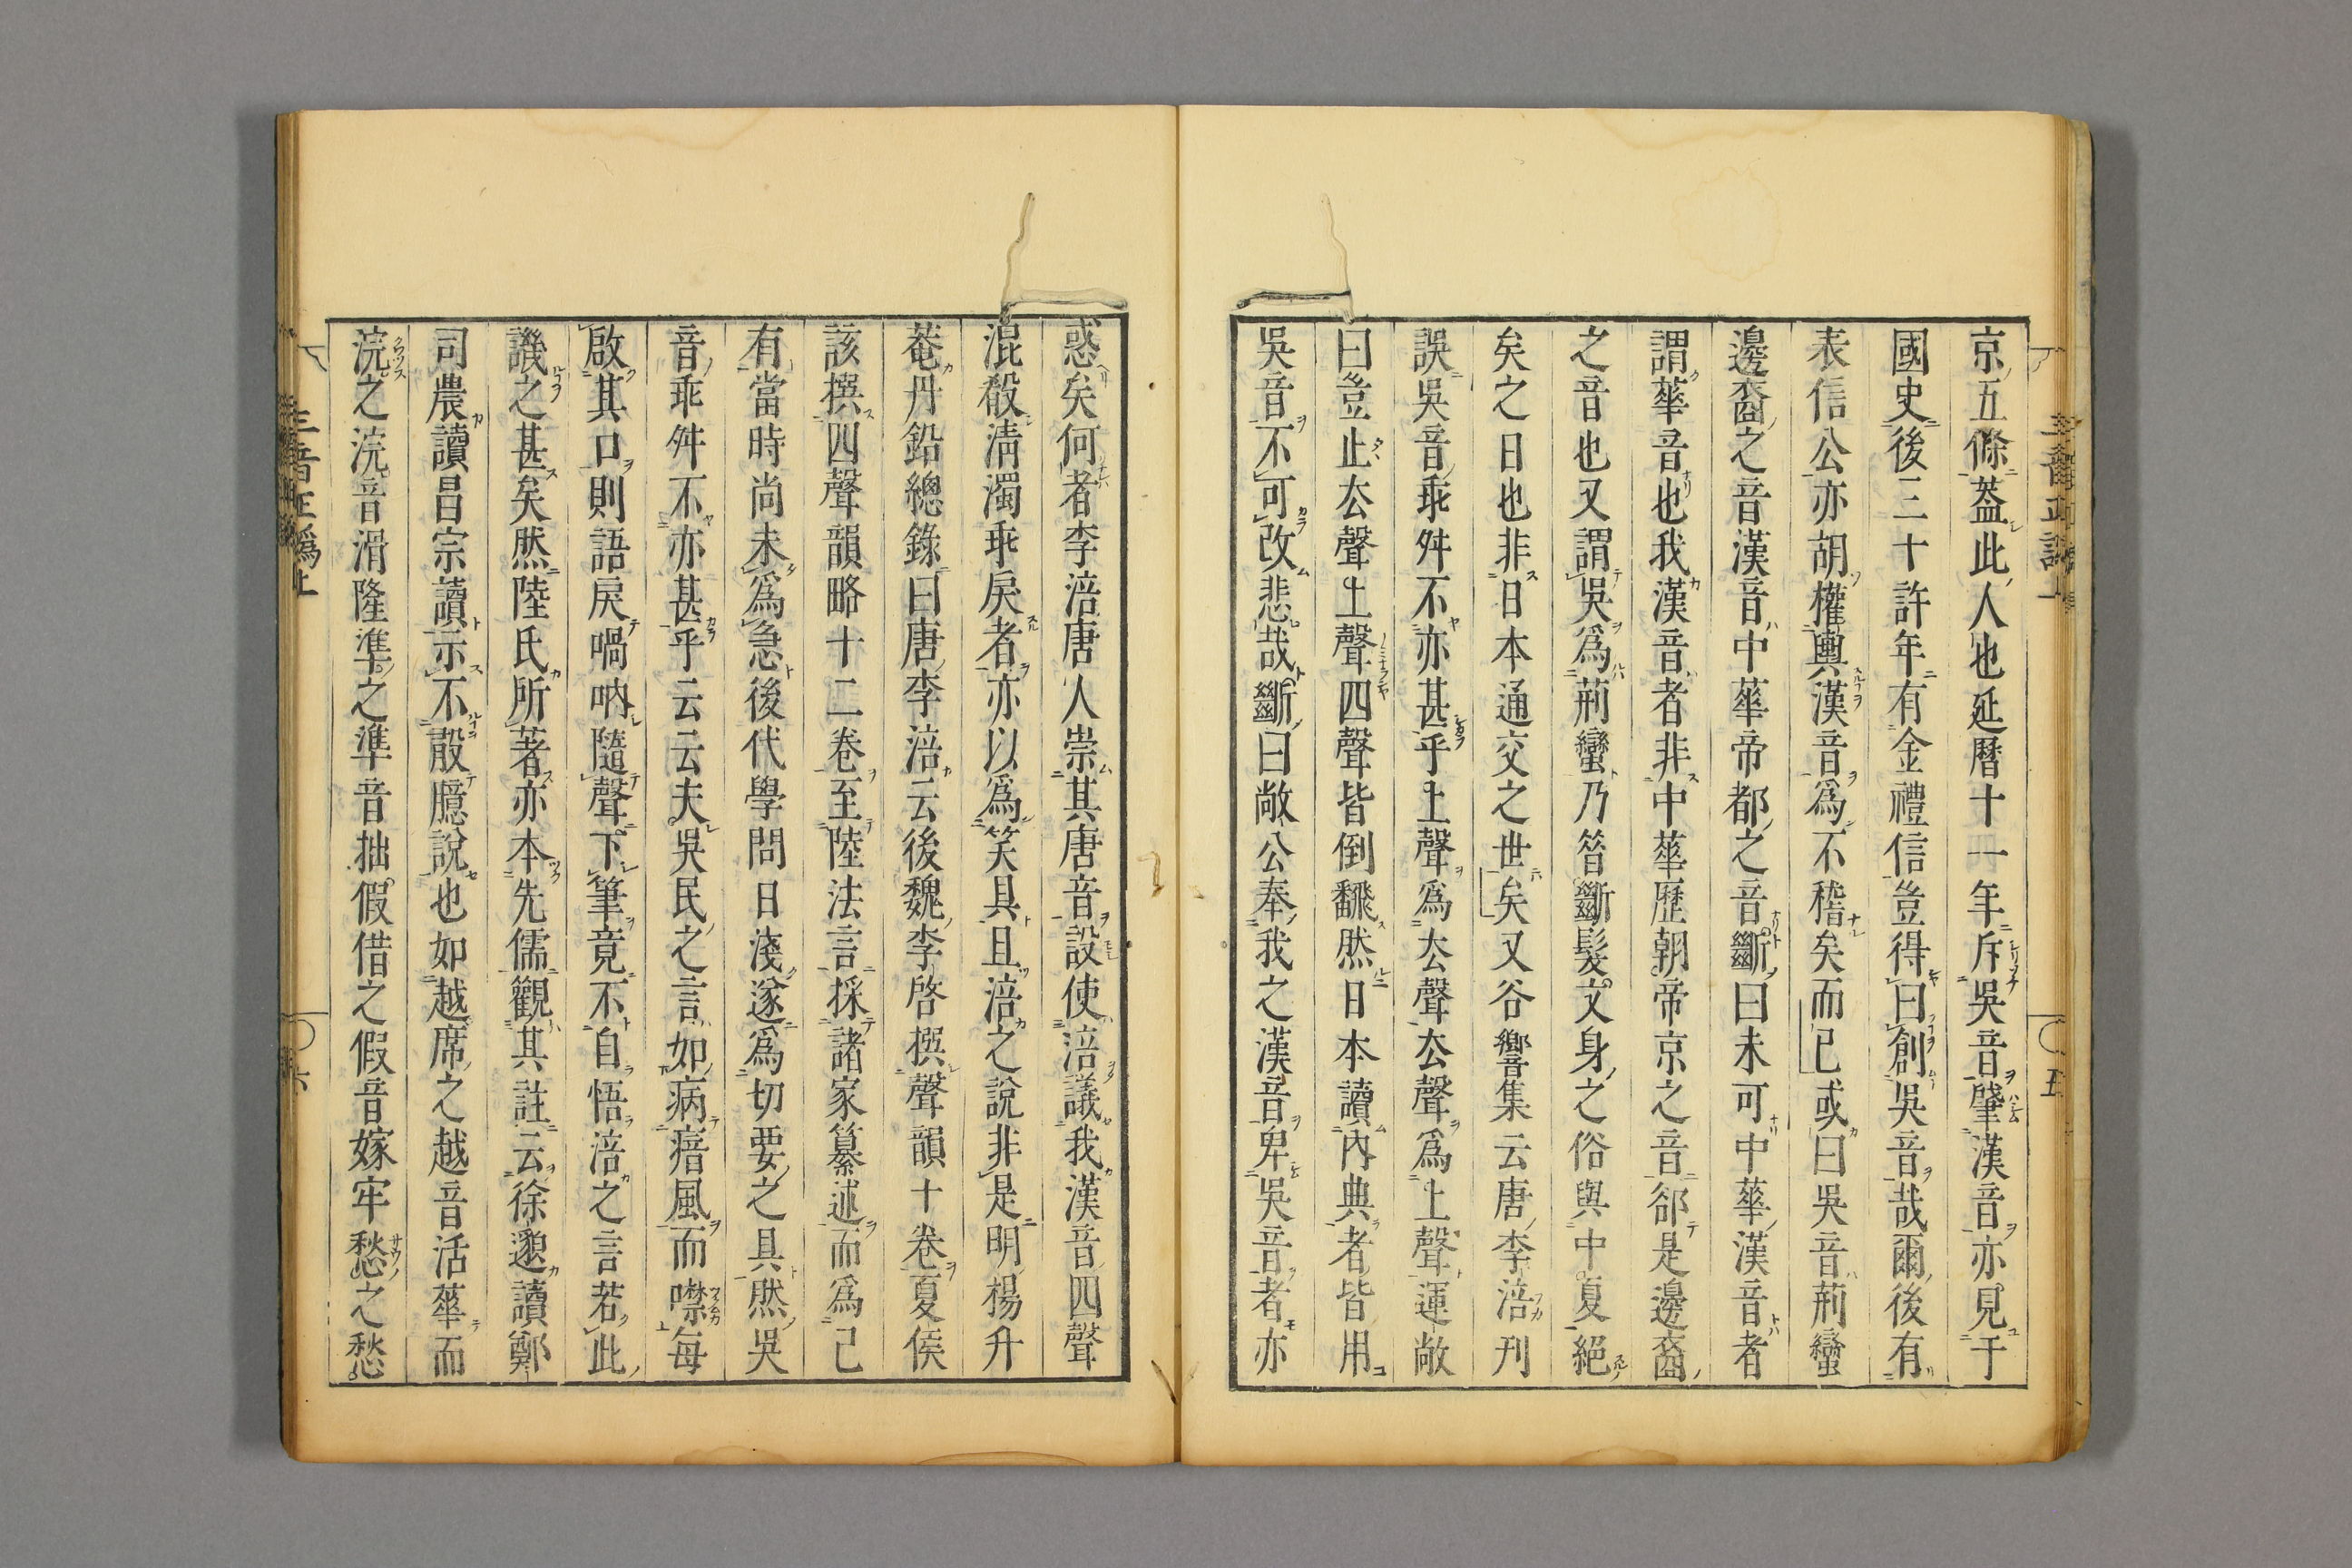 京五條蓋此人也延曆十一年斥吳音肇漢音亦見于
國史後三十許年有金禮信豈得曰創吳音哉爾後有
表信公亦胡權輿漢音爲不稽矣而已或曰吳音荊蠻
邊裔之音漢音中華帝都之音斷曰未可中華漢音者
謂華音也我漢音者非中華歷朝帝京之音郤是邊裔
之音也又謂吳爲荊蠻乃昝斷髮文身之俗與中夏絕
矣之日也非日本通交之世矣又谷響集云唐李涪刋
誤吳音乖舛不亦甚乎上聲爲去聲去聲爲上聲運敞
曰豈止去聲上聲四聲皆倒飜然日本讀內典者皆用
吳音不可改悲哉斷曰敞公奉我之漢音卑吳音者亦
惑矣何者李涪唐人崇其唐音設使涪議我漢音四聲
混殽淸濁乖戾者亦以爲笑具且涪之說非是明楊升
菴丹鉛總錄曰唐李涪云後魏李啓撰聲韻十卷夏侯
該撰四聲韻略十二卷至陸法言採諸家纂述而爲己
有當時尚未爲急後代學問日淺遂爲切要之具然吳
音乖舛不亦甚乎云云夫吳民之言如病瘖風而噤每
啟其口則語戾喎吶隨聲下筆竟不自悟涪之言若此
譏之甚矣然陸氏所著亦本先儒觀其註云徐邈讀鄭
司農讀昌宗讀示不敢臆說也如越席之越音活華而
浣之浣音滑隆準之準音拙假借之假音嫁牢愁之愁
三音正譌上
五
三音正譌上
六